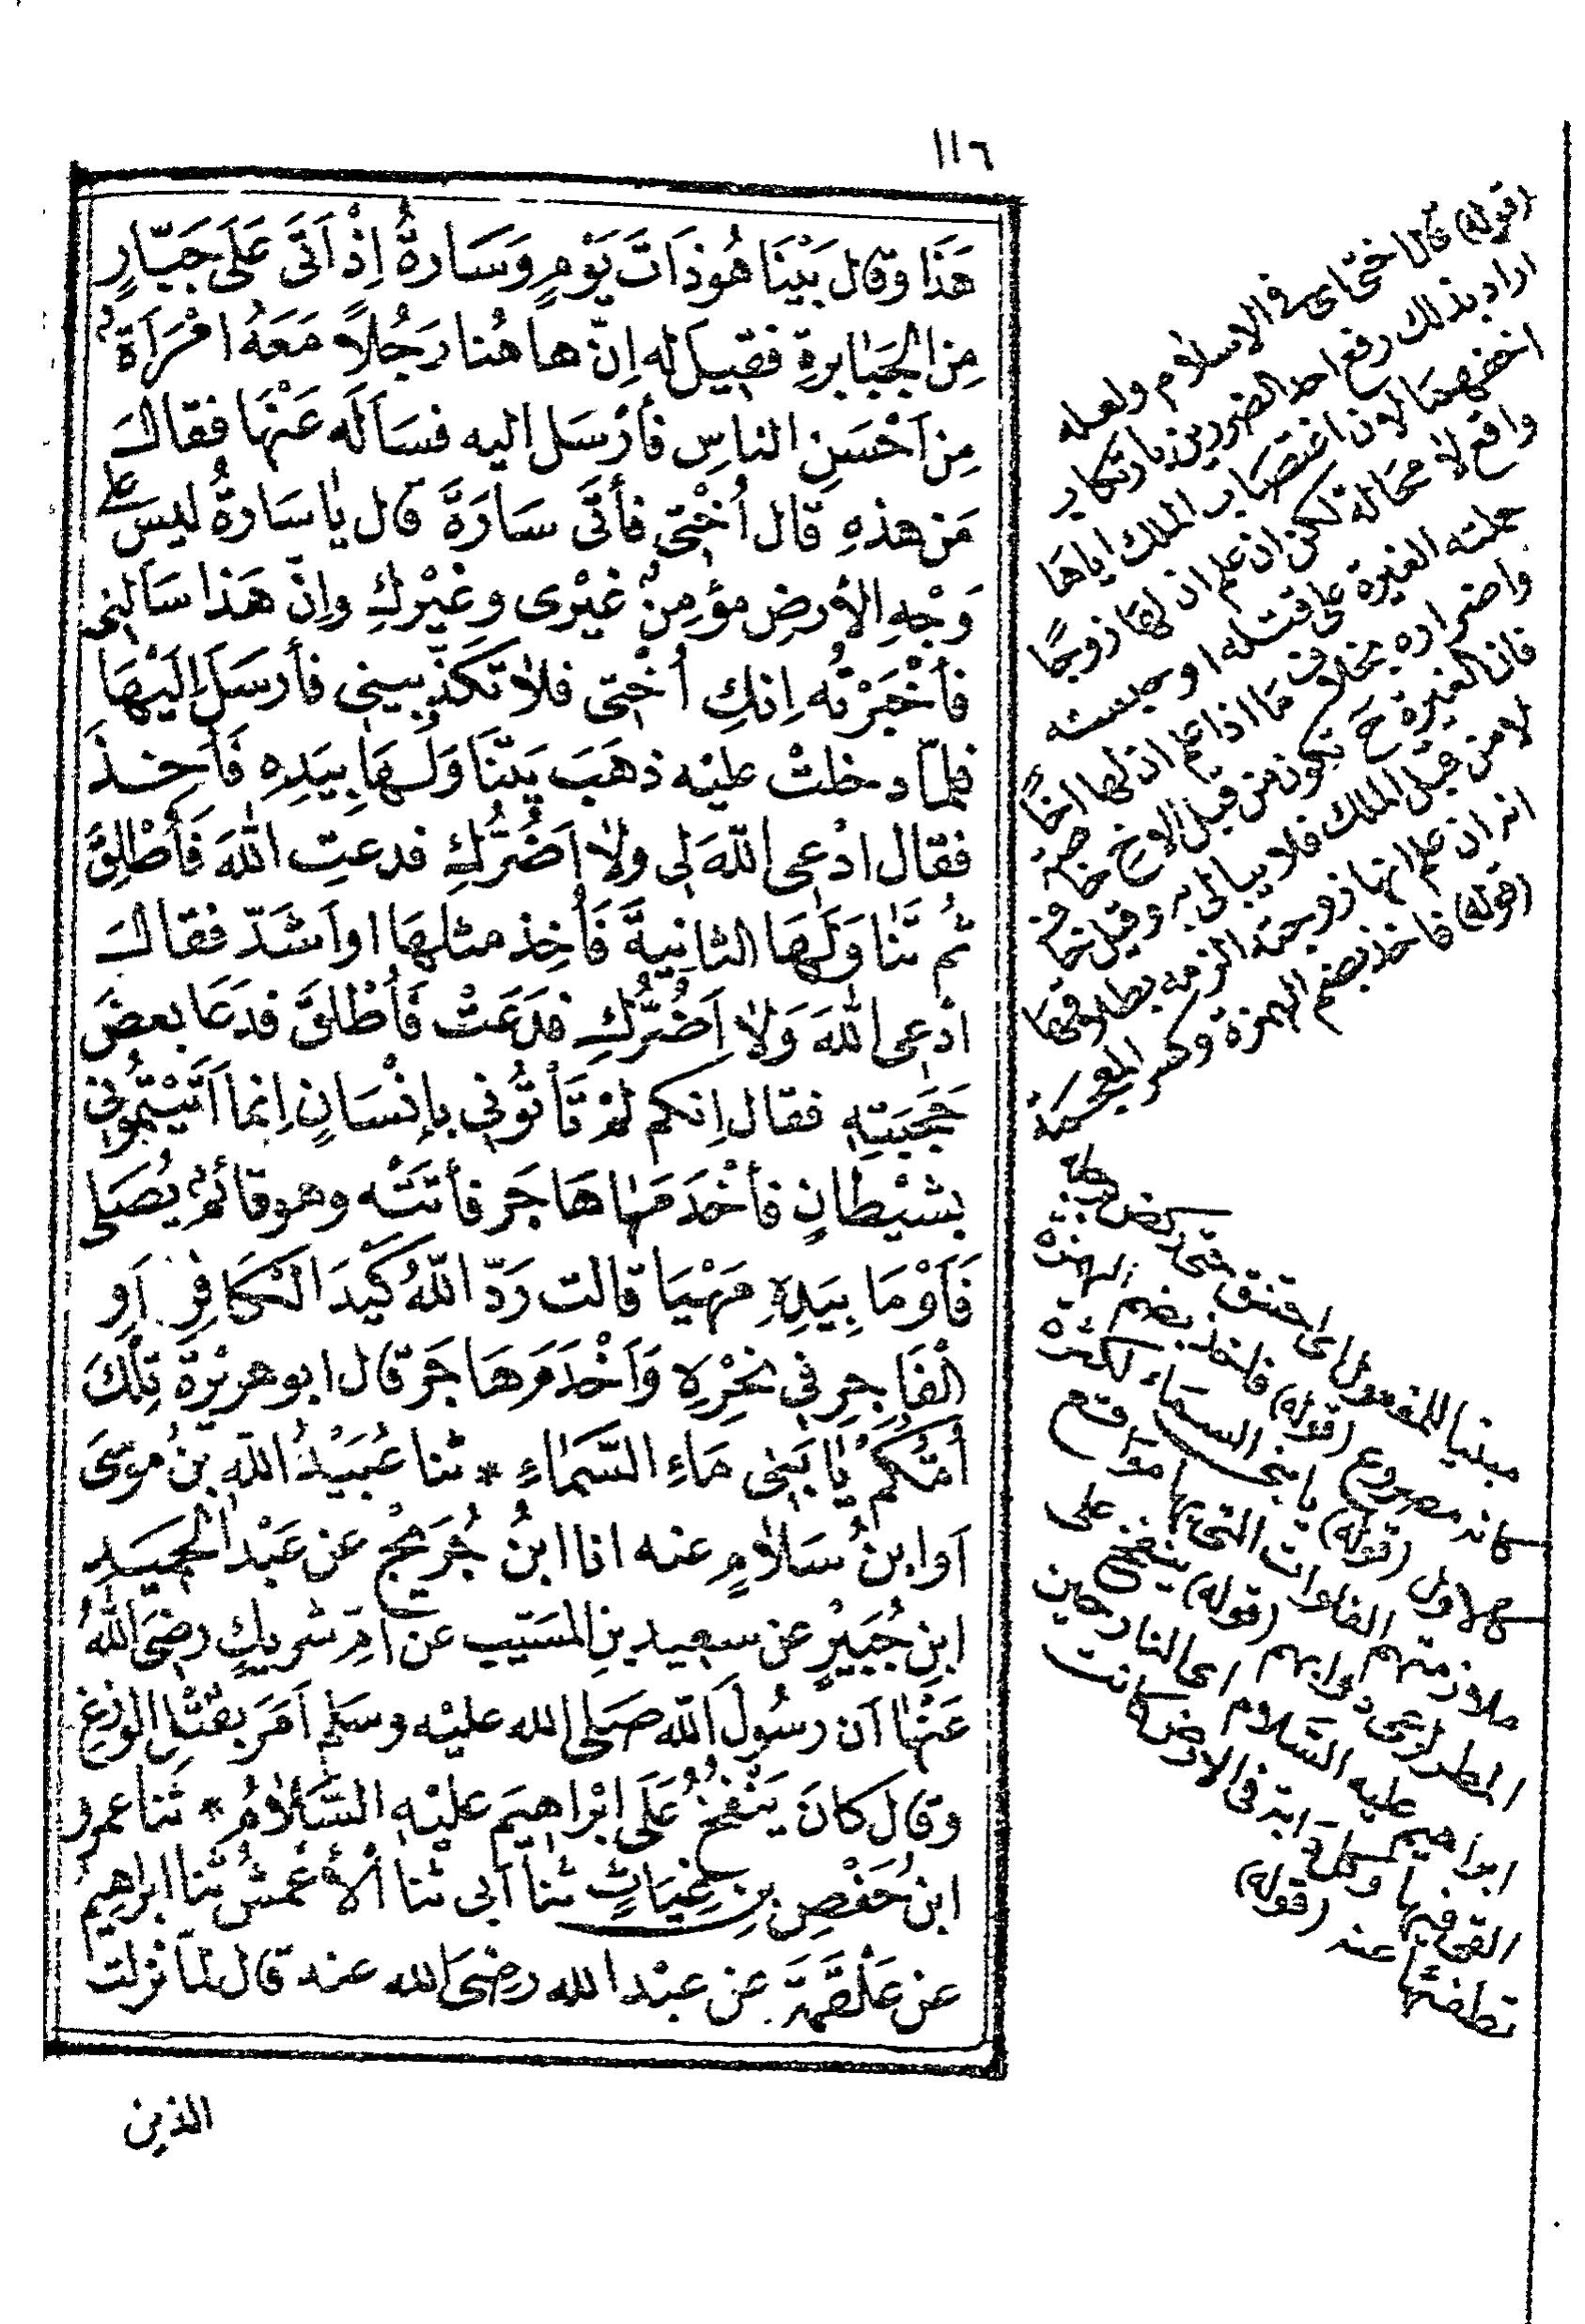 ١١٦
هَذَا وَقَالَ بَيْنَا هُوَ ذَاتَ يَوْمٍ وَسَارَةُ اِذْ اَتَى عَلَى جَبَّارٍ
مِنَ الجَبَابِرَةِ فقيل له اِنّ هاهُنا رَجُلاً مَعَهُ امْرَاَةٌ
مِن اَحْسَنِ الناسِ فأرْسَل اليه فسَاَلَه عَنْهَا فقال
مَن هذهِ قال اُخْتِى فأتَى سَارَةَ قال يَا سَارَةُ ليسَ على
وَجْهِ الأرضِ مؤمِنٌ غيْرى وغيْركِ واِنّ هَذا سَألنِى
فأخْبَرْتُه اِنكِ اُخْتِى فلا تكَذّبِينِى فأرسَلَ اِلَيْهَا
فلمّا دخلتْ عليْه ذهَبَ يَتَنَاوَلُهَا بِيَدِهِ فَاُخِذَ
فقال ادْعِى اللهَ لِى ولا اَضُرُّكِ فدعتِ اللهَ فَأُطْلِقَ
ثُم تَنَاوَلَهَا الثانِيةَ فَأُخِذ مثلهَا اواَشَدّ فقال
ادْعِى اللهَ وَلا اَضُرُّكِ فدَعَتْ فَأُطْلقَ فدَعَا بعضَ
حَجَبَتِهِ فقال اِنكم لمْ تَأتُونِى بإنْسَانٍ اِنما اَتَيْتُمُونِى
بشيْطانٍ فأخْدَمَهَا هَاجَر فأتَتْه وهو قائمٌ يُصَلى
فَأوْمَا بِيَدِهِ مَهْيَا قالت رَدّ اللهُ كَيْدَ الكَافِرِ اَوِ
الْفَاجِرِ فى نحْرِهِ وَاَخْدَمَ هَاجَر قال ابو هريْرَة تِلْكَ
اُمُّكُمْ يَا بَنِى مَاءِ السَّمَاءِ * ثنا عُبَيْدُ اللهِ بنُ مُوسَى
اَوِ ابنُ سَلامٍ عنه انا ابنُ جُرَيْجٍ عن عَبْد الحَمِيدِ
ابنِ جُبَيْرٍ عن سعيد بنِ المسَيّب عن اُمّ شَرِيكٍ رضِىَ اللهُ
عَنْهَا اَن رسُولَ اللهِ صَلى الله عليْه وسَلم اَمَرَ بقَتْلِ الوزَغ
وقال كانَ يَنْفخُ عَلَى اِبْرَاهِيمَ عليْهِ السَّلامُ * ثنا عمر
ابنُ حَفْصِ بنِ غِيَاثٍ ثنا اَبى ثنا الأعْمَشُ ثنا ابراهِيمُ
عن عَلْقَمَةَ عن عبْد الله رضِىَ الله عنه قال لمّا نزلت
الذين
(قوله) قال اختى اى فى الاسلام ولعله
اراد بذلك رفع احد الضررين بارتكاب
اخفهما لان اغتصاب الملك اياها
واقع لا محالة لكن ان علم ان لها زوجا
حملته الغيرة على قتله او حبسه
واضراره بخلاف ما اذا علم ان لها اخا
فان الغيرة ح تكون من قبل الاخ خاصة
لا من قبل الملك فلا يبالى به وقيل خاف
انه ان علم انها زوجته الزمه بطلاقها
(قوله) فاخذ بضم الهمزة وكسر المعجمة
مبنيا للمفعول اى اختنق حتى ركض برجله
كانه مصروع (قوله) فاخذ بضم الهمزة
كالاول (قوله) يا بنى ماء السماء لكثرة
ملازمتهم الفلوات التى بها مواقع
المطر لرعى دوابهم (قوله) ينفخ على
ابراهيم عليه السلام اى النار حين
القى فيها وكل دابة فى الارض كانت
تطفئها عنه (قوله)